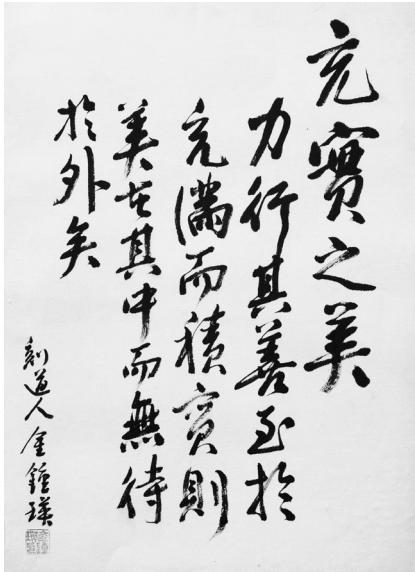 充實之美
力行其善至於
充滿而積實則
美在其中而無待
於外矣
剡道人金鐘瑛